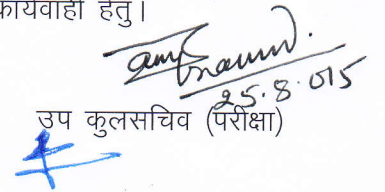 कार्यवाही हेतु।
25.8.015
उप कुलसचिव (परीक्षा)